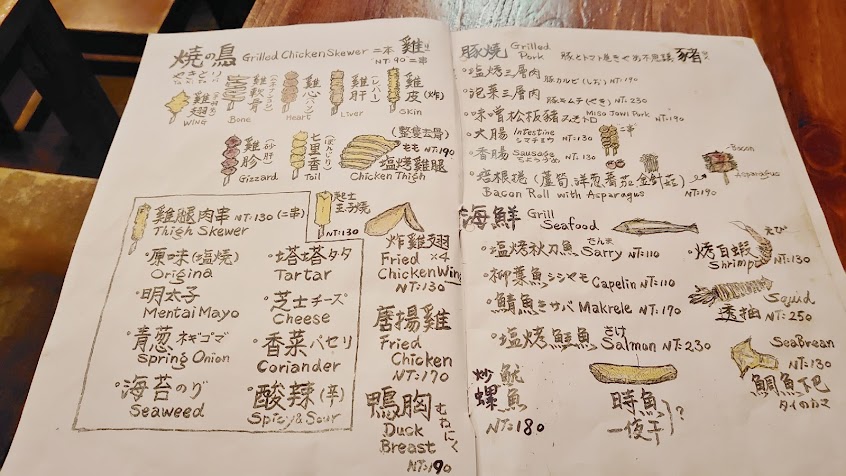 燒の鳥 Grilled Chicken Skewer 二本 雞
NT 90 二串
やきとり
雞翅
WING
雞軟骨
Bone
雞心(ハツ)
Heart
雞肝(レバー)
Liver
雞皮(炸)
Skin
雞胗(砂肝)
Gizzard
七里香(ぼんじり)
Tail
(整隻去骨)
もも NT:190
塩烤雞腿
Chicken Thigh
雞腿肉串 NT:130 (二串)
Thigh Skewer
原味(塩燒)
Origina
塔塔タタ
Tartar
明太子
Mentai Mayo
芝士チーズ
Cheese
青葱ネギゴマ
Spring Onion
香菜パセリ
Coriander
海苔のり
Seaweed
酸辣(辛)
Spicy & Sour
起士
玉子燒
NT:130
炸雞翅
Fried ×4
Chicken Wing
NT:130
唐揚雞
Fried
Chicken
NT:170
鴨胸 むねにく
Duck
Breast
NT:190
豚燒 Grilled Pork
豬
塩烤三層肉 豚カルビ(しお) NT:190
泡菜三層肉 豚キムチ(やき) NT:230
味噌松板豬 Miso Jowl Pork NT:190
大腸 Intestine シマチョウ NT:130
二串
香腸 Sausage ちょうづめ NT:130
烤根捲(蘆筍,洋葱,番茄,金針菇)
NT:190
Bacon Roll with Asparagus
Bacon
Asparagus
海鮮 Grill Seafood
塩烤秋刀魚 さんま Sarry NT:110
烤白蝦 えび
Shrimp NT:130
柳葉魚 シシャモ Capelin NT:110
鯖魚きサバ Makrele NT:170
Squid
透抽 NT:250
塩烤鮭魚 さけ Salmon NT:230
SeaBrean
NT:130
鯛魚下巴
タイのカマ
炒魷
螺魚
NT:180
時魚
一夜干 ?